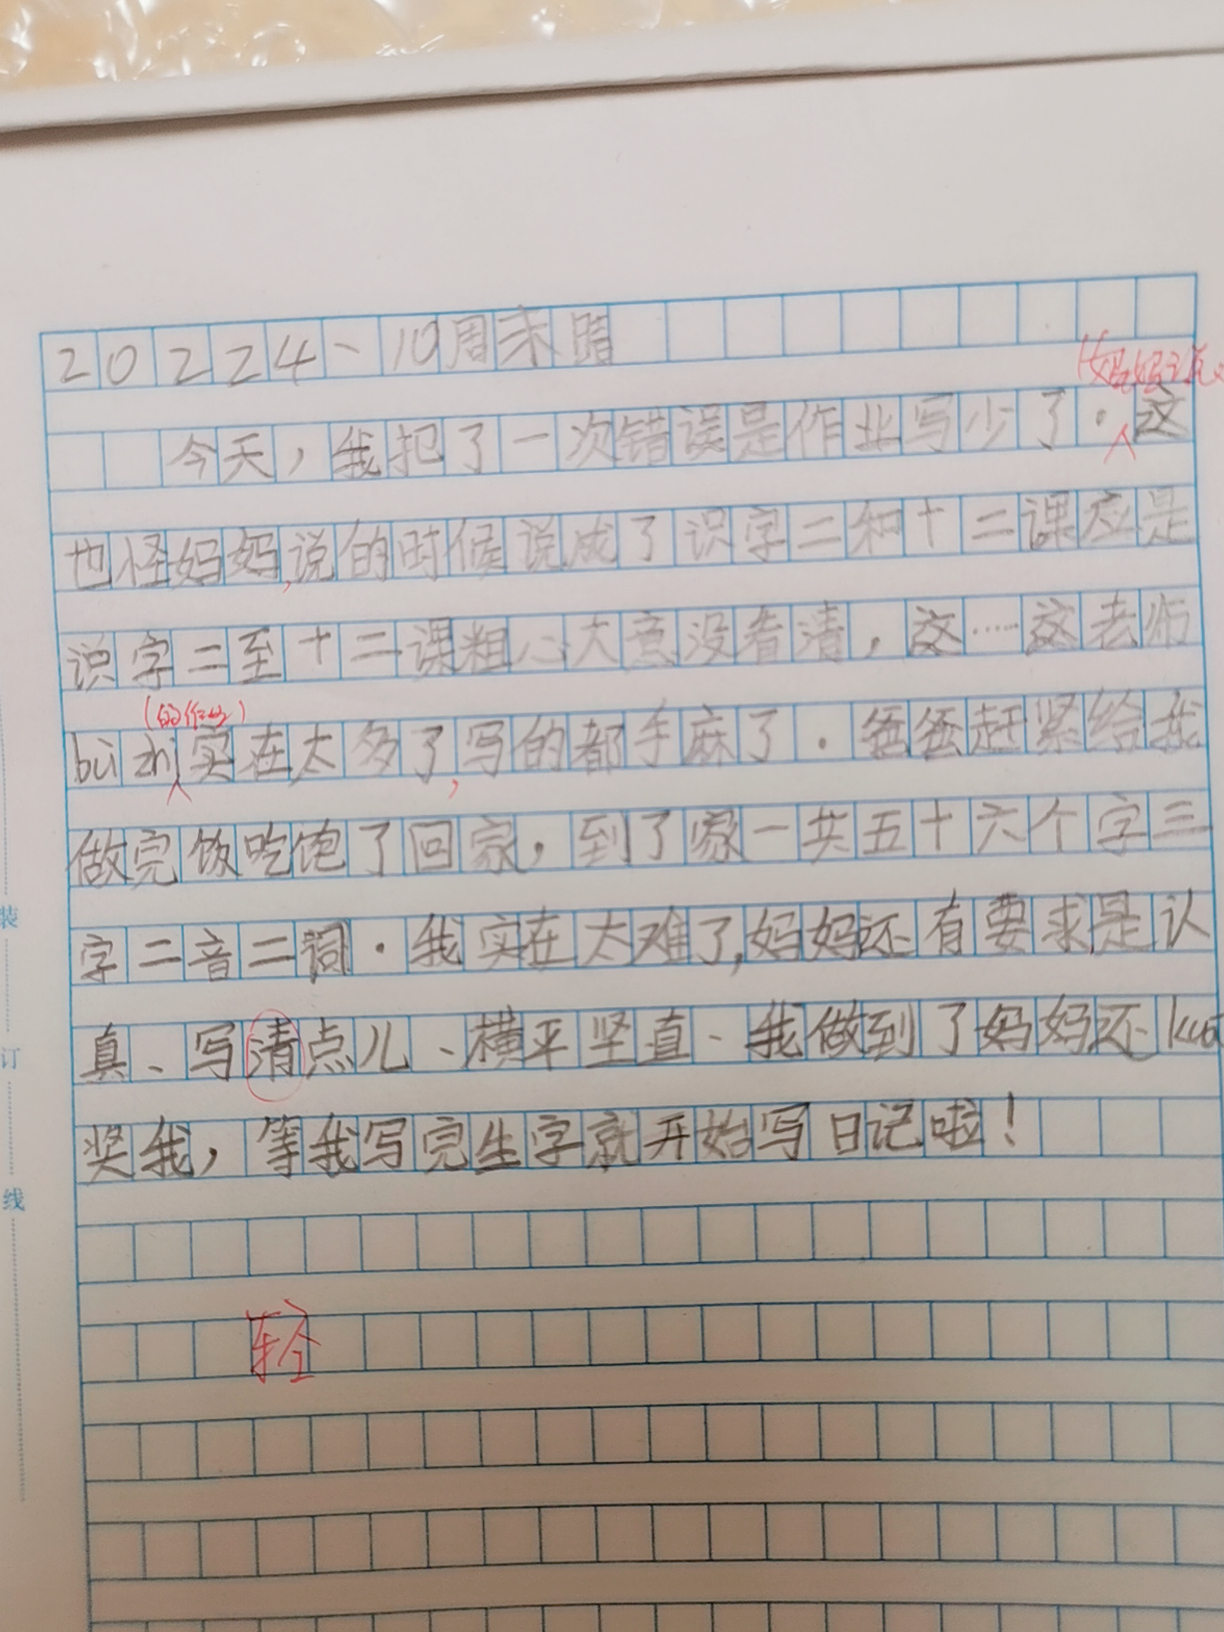 20224、10周末晴
(妈妈说
今天，我把了一次错误是作业写少了.这
也怪妈妈,说的时候说成了识字二和十二课应是
识字二至十二课粗心大意没看清，这……这老师
(的作业)
bù zhì实在太多了,写的都手麻了.爸爸赶紧给我
做完饭吃饱了回家，到了家一共五十六个字三
字二音二词.我实在太难了,妈妈还有要求是认
真、写清点儿、横平坚直、我做到了妈妈还kuā
奖我，等我写完生字就开始写日记啦！
轻
装
订
线